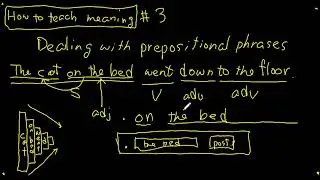 How to teach meaning #3
Dealing with prepositional phrases
The cat on the bed went down to the floor.
V adv adv
adj . on the bed
. the bed post